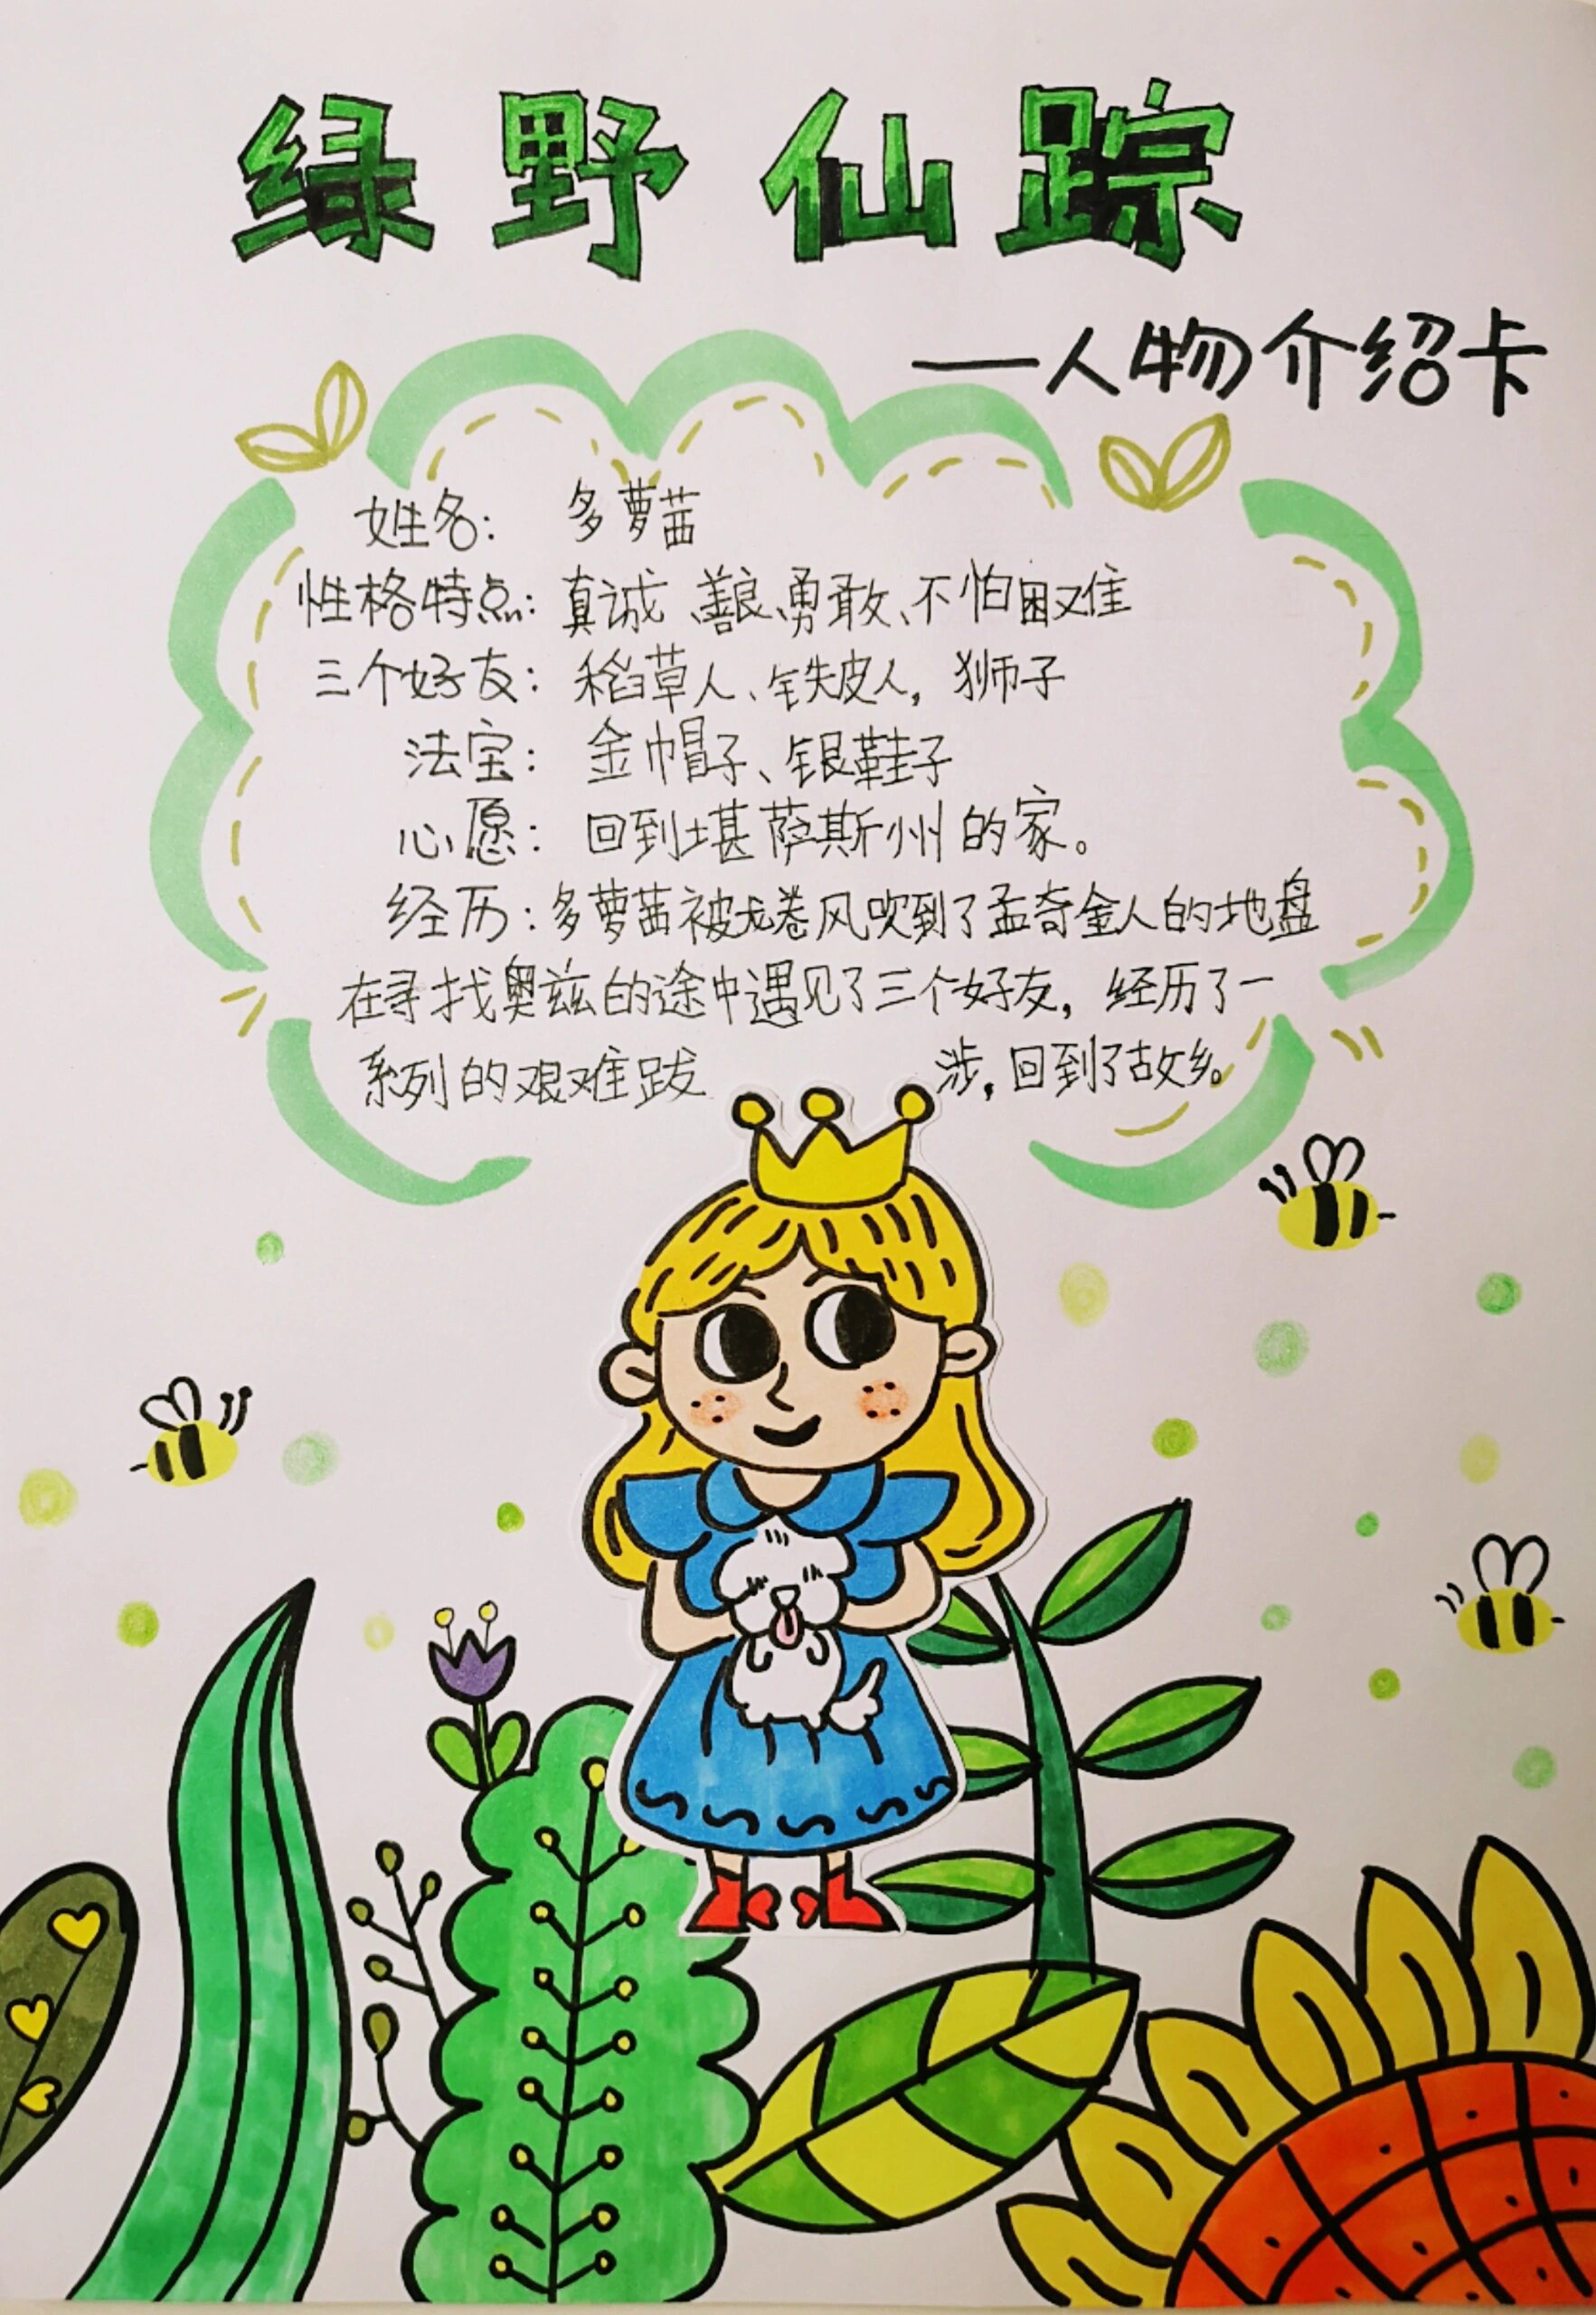 绿野仙踪
——人物介绍卡
姓名： 多萝茜
性格特点：真诚、善良、勇敢、不怕困难
三个好友：稻草人、铁皮人，狮子
法宝： 金帽子、银鞋子
心愿： 回到堪萨斯州的家。
经历：多萝茜被龙卷风吹到了孟奇金人的地盘
在寻找奥兹的途中遇见了三个好友，经历了一
系列的艰难跋 涉，回到了故乡。